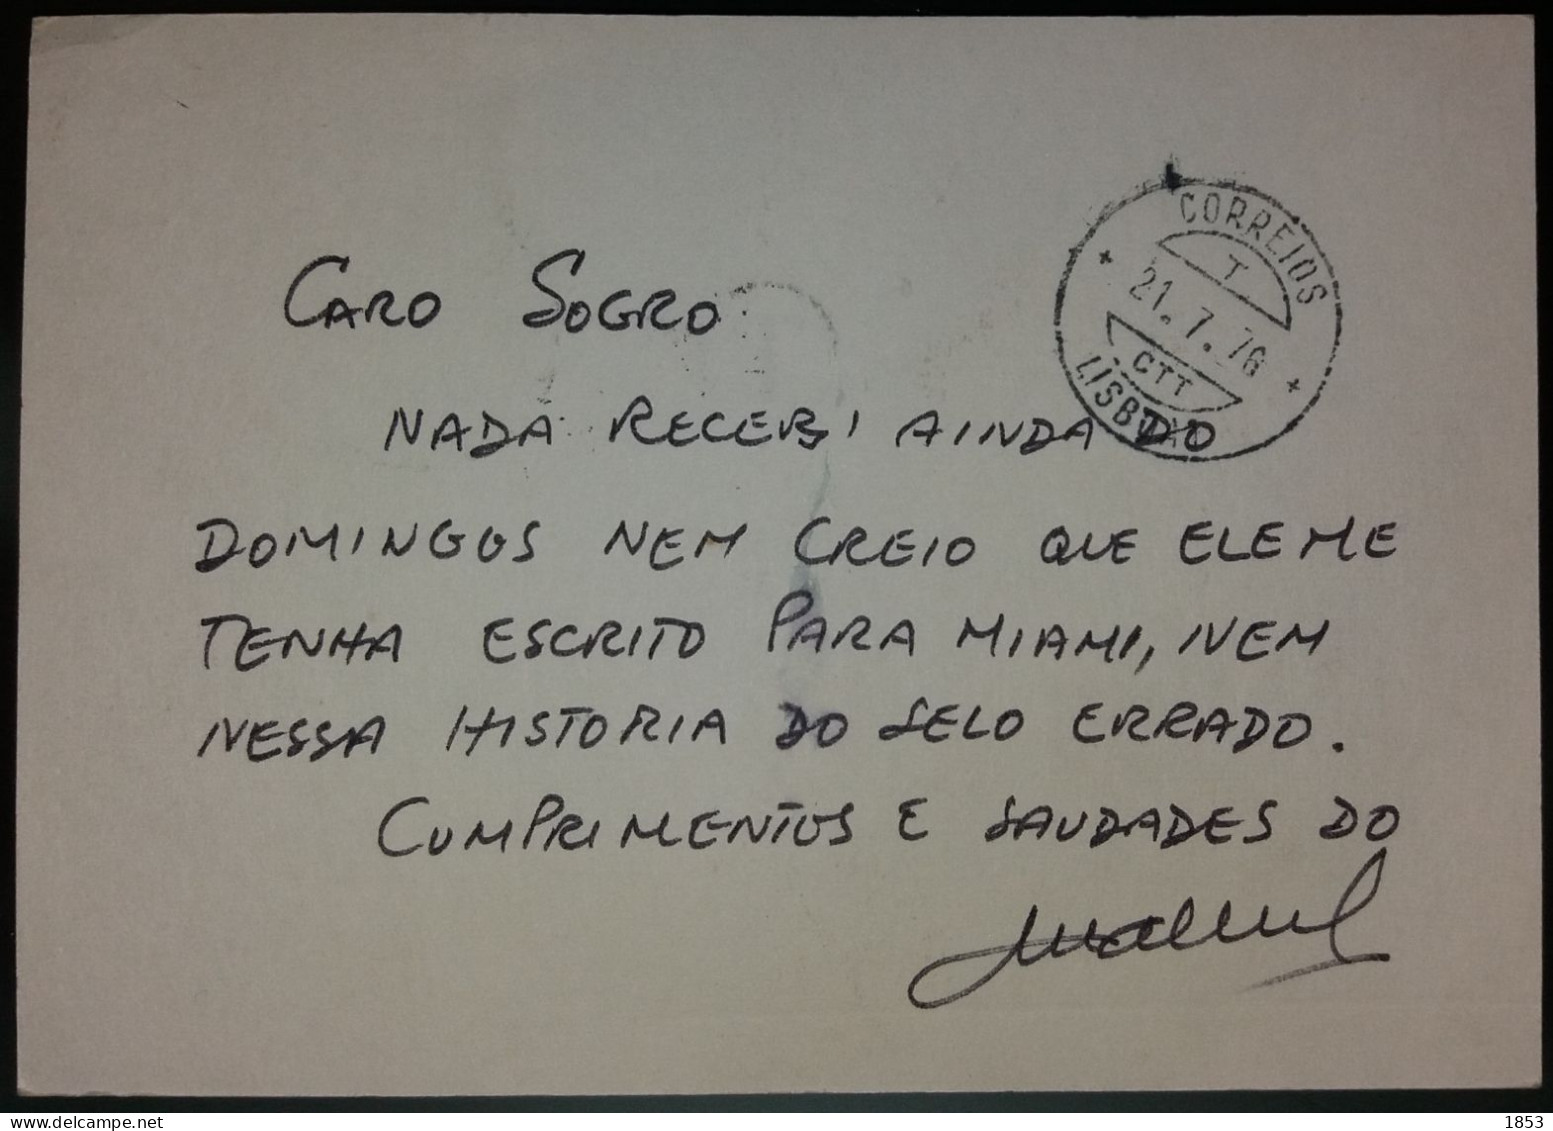 CARO SOGRO
CORREIOS
T
21.7.76
CTT
LISBOA
NADA RECEBI AINDA DO
DOMINGOS NEM CREIO QUE ELE ME
TENHA ESCRITO PARA MIAMI, NEM
NESSA HISTORIA DO SELO ERRADO.
CUMPRIMENTOS E SAUDADES DO
Manuel
delcampe.net
1853